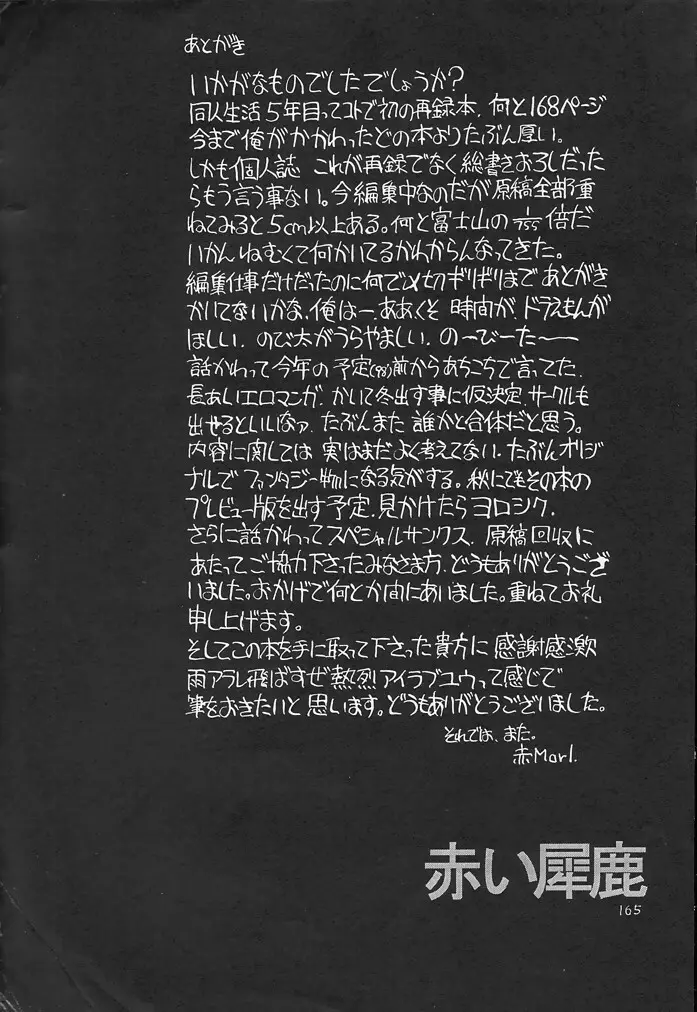 あとがき
いかがなものでしたでしょうか?
同人生活5年目ってコトで初の再録本、何と168ページ
今まで俺がかかわったどの本よりたぶん厚い。
しかも個人誌 これが再録でなく総書きおろしだった
らもう言う事ない。今編集中なのだが原稿全部重
ねてみると5cm以上ある。何と富士山の 倍だ
いかんねむくて何かいてるかわからんなってきた。
編集仕事だけだったのに何で〆切ギリギリまであとがき
かいてないかな、俺は一、ああくそ 時間が、ドラえもんが
ほしい、のび太がうらやましい、のーびーたー
話かわって今年の予定(98)前からあちこちで言ってた、
長あいエロマンガ、かいて冬出す事に仮決定、サークルも
出せるといいなァ、たぶんまた 誰かと合体だと思う。
内容に関しては 実はまだよく考えてない、たぶんオリジ
ナルで ファンタジー物になる気がする。秋にでもその本の
プレビュー版を出す予定、見かけたらヨロシク、
さらに話かわってスペシャルサンクス、原稿回収に
あたってご協力下さったみなさま方、どうもありがとうござい
ました。おかげで何とか間にあいました。重ねてお礼
申し上げます。
そしてこの本を手に取って下さった貴方に 感謝感激
雨アラレ飛ばすぜ熱烈アイラブユウって感じで
筆をおきたいと 思います。どうもありがとうございました。
それでは、また。
赤Marl.
赤い犀鹿
165